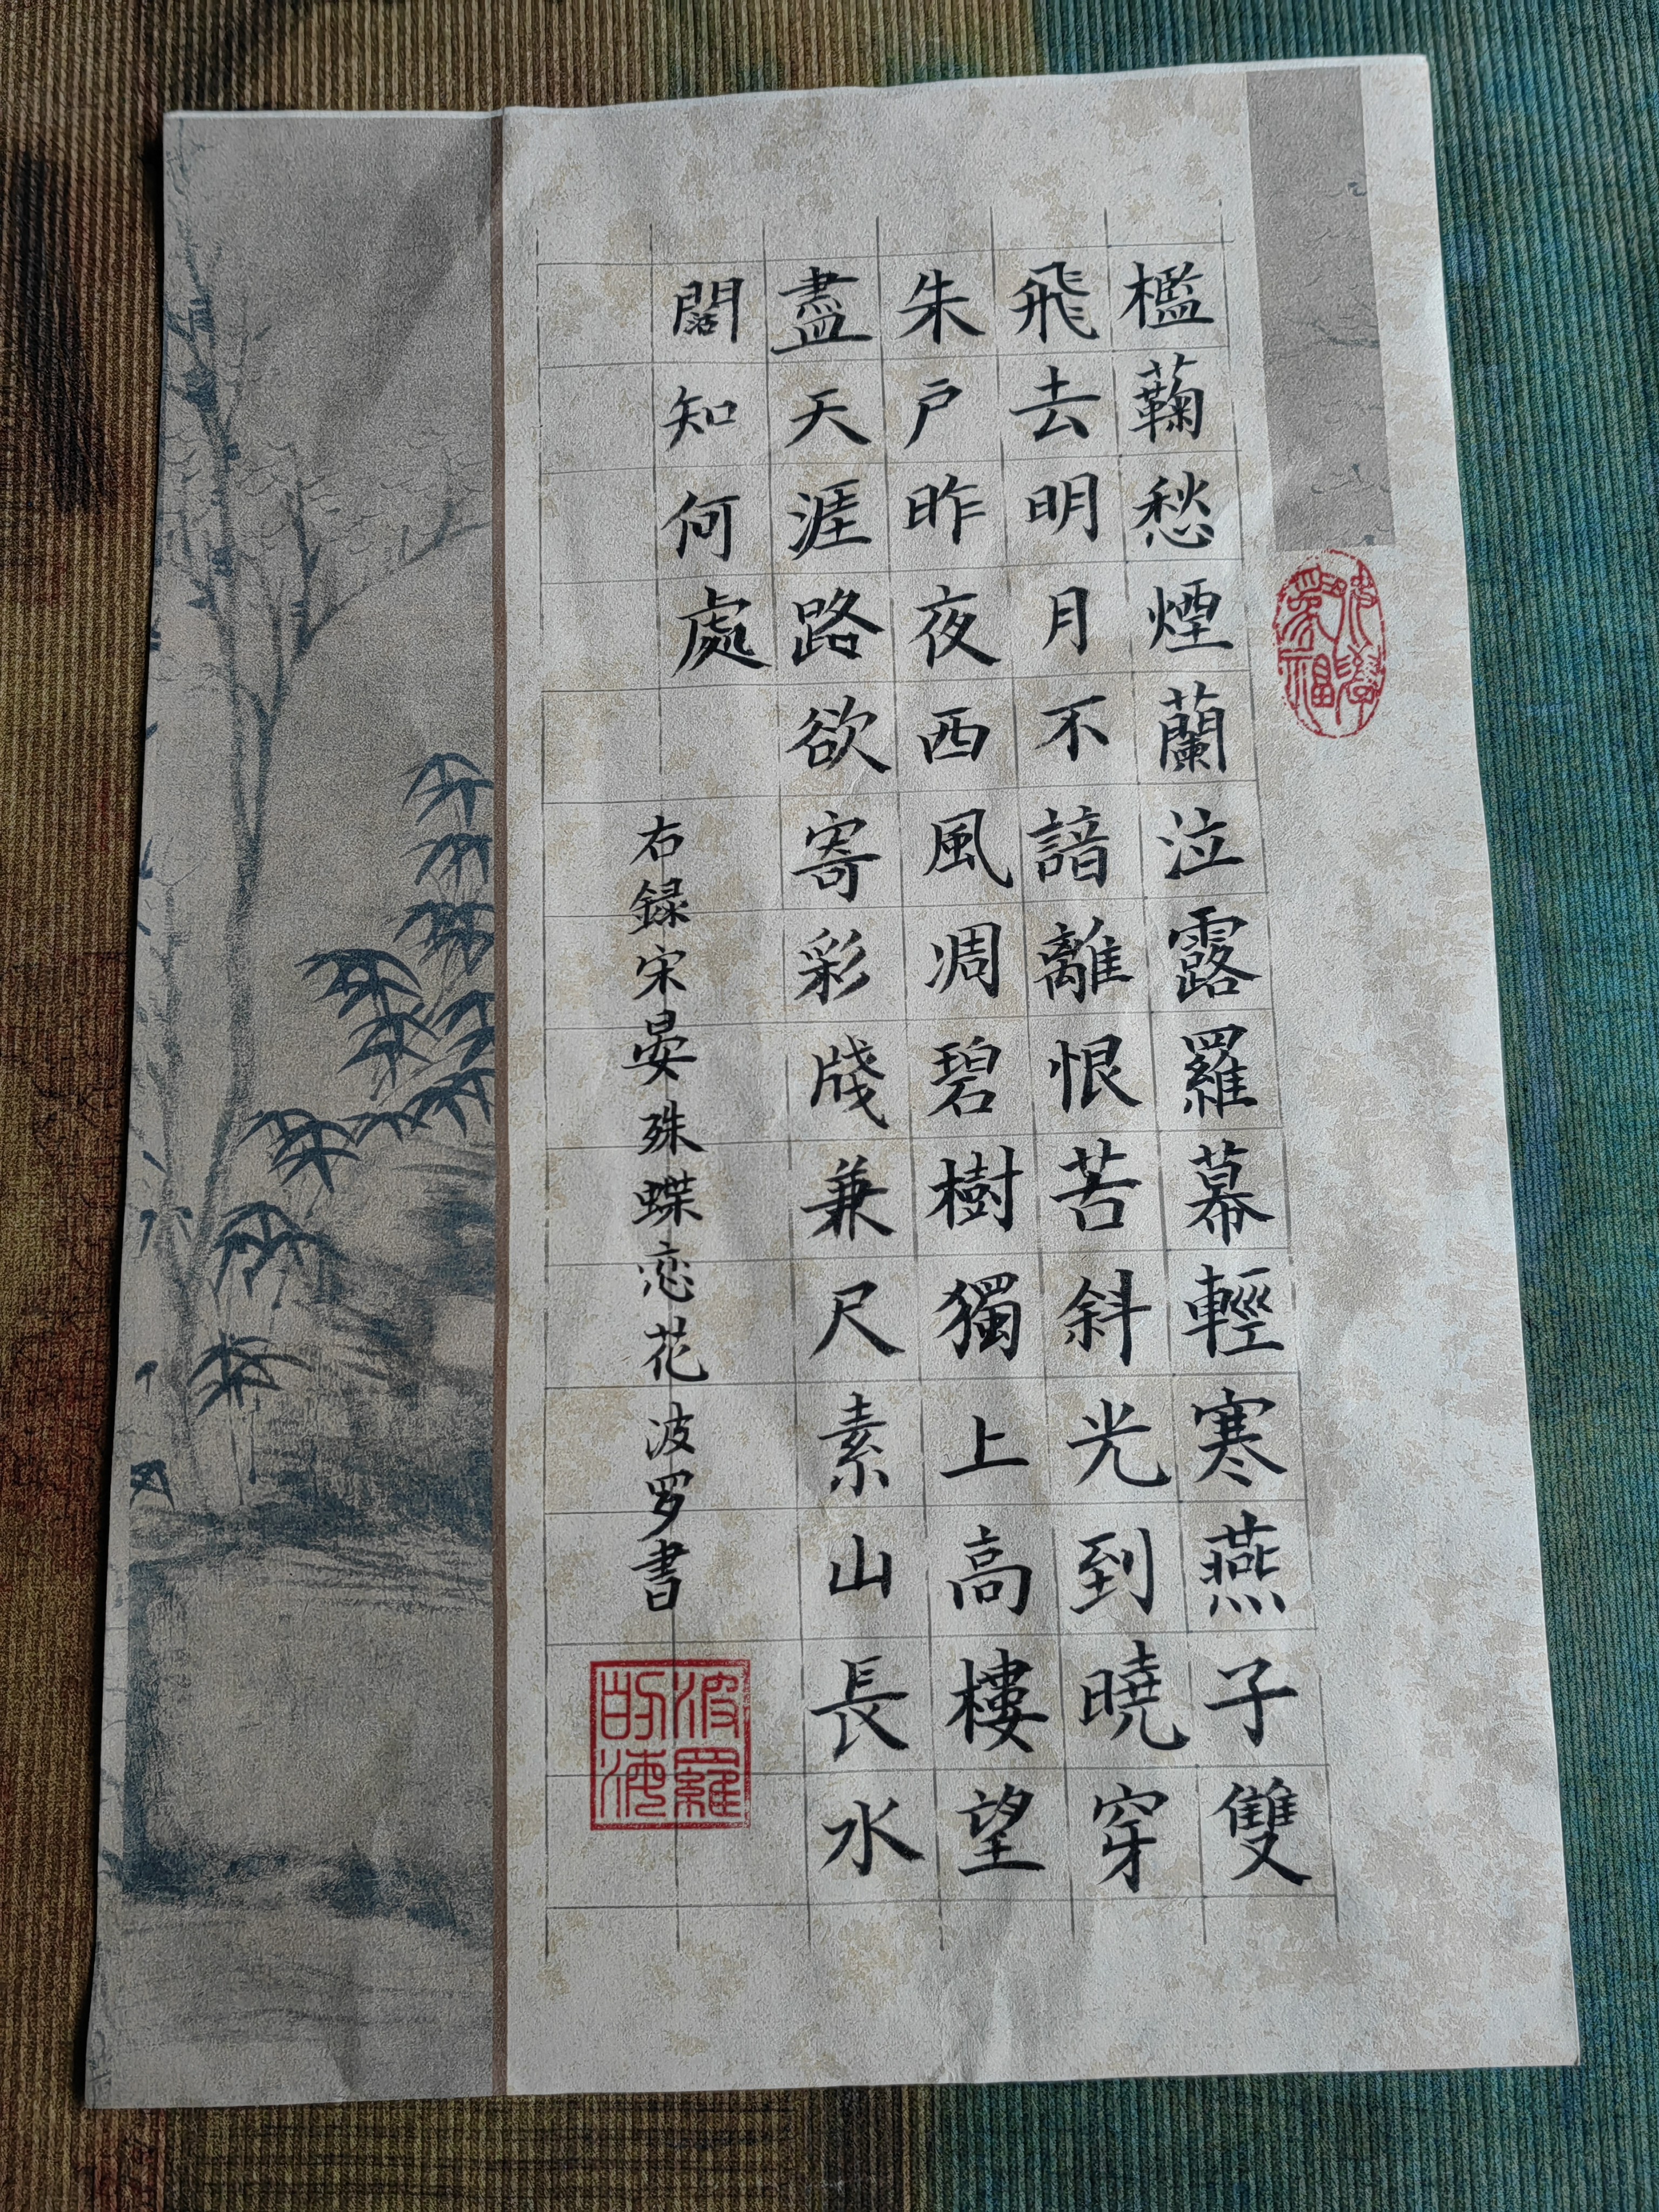 檻蘜愁煙蘭泣露羅幕輕寒燕子雙
飛去明月不諳離恨苦斜光到曉穿
朱户昨夜西風凋碧樹獨上高樓望
盡天涯路欲寄彩牋兼尺素山長水
闊知何處
右録宋晏殊蝶恋花 波罗書
波羅
的海